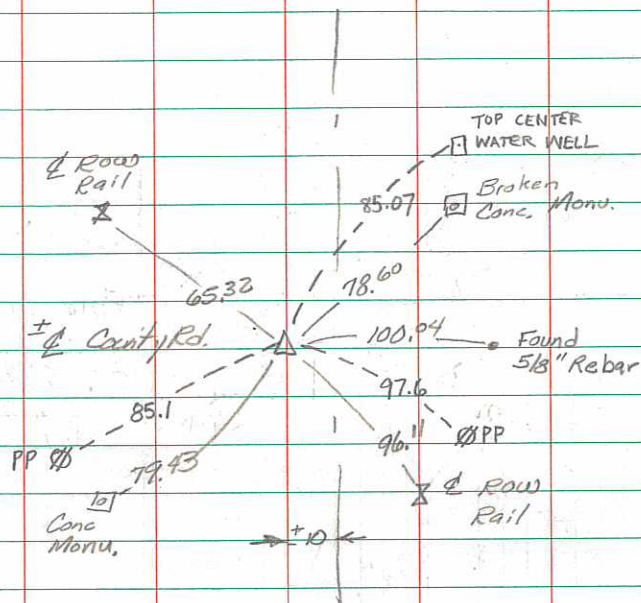 TOP CENTER
WATER WELL
℄ ROW
Rail
Broken
Conc. Monu.
85.07
65.32
78.60
± ℄ County Rd.
100.04
Found
5/8" Rebar
97.6
85.1
96.11
PP
PP
79.43
Conc
Monu.
℄ ROW
Rail
±10